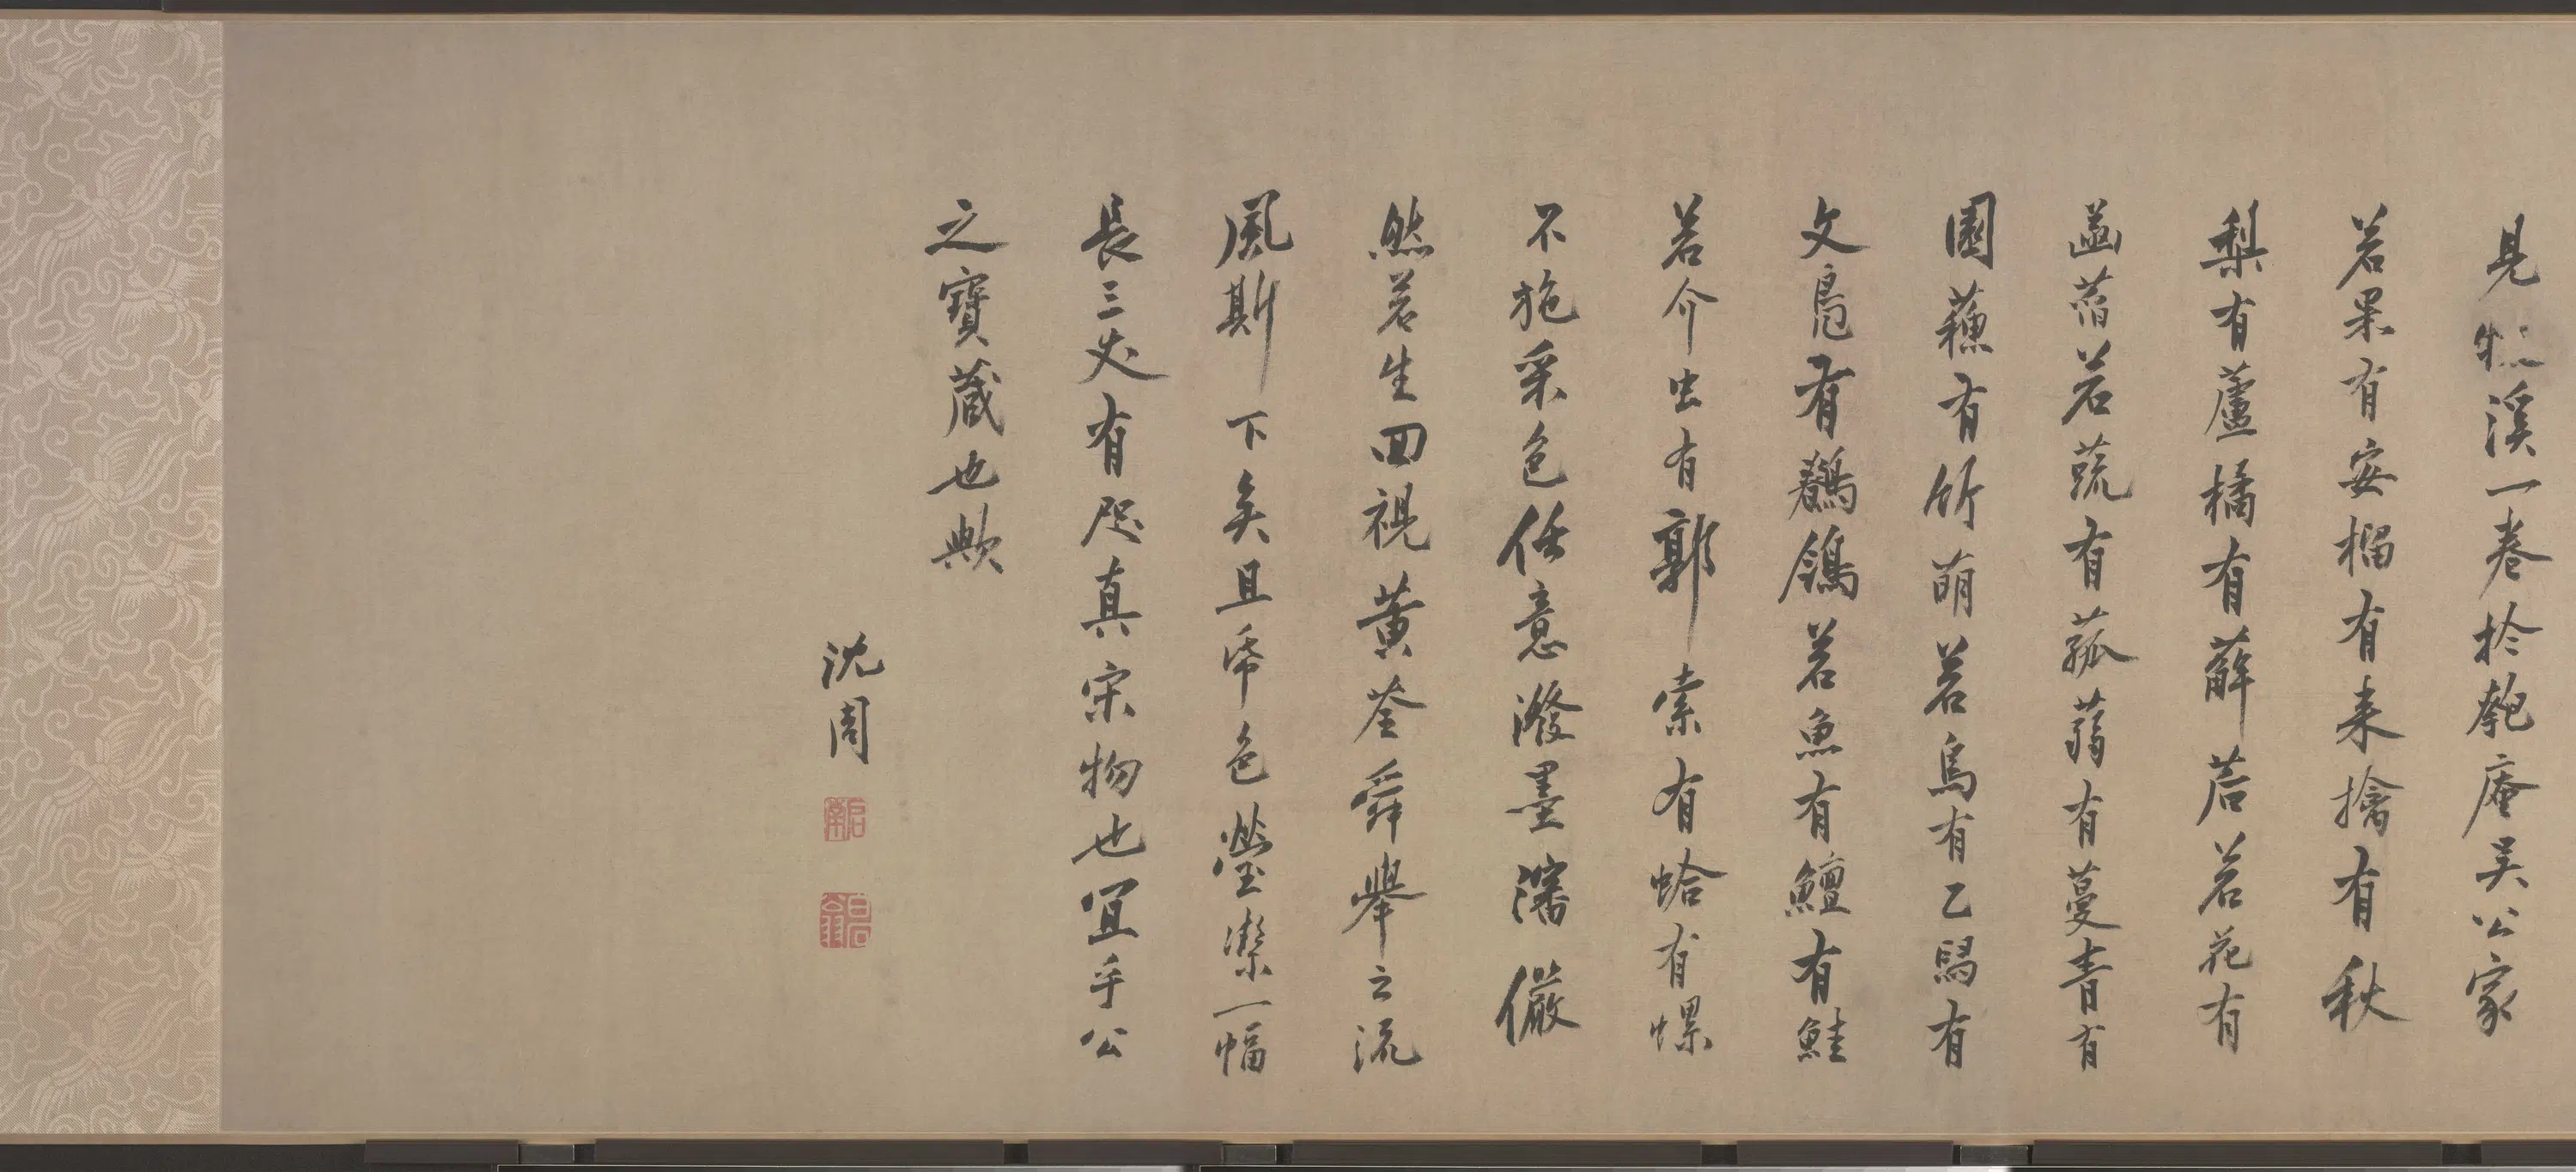 見牧溪一卷於匏庵吴公家
若果有安榴有来擒有秋
梨有蘆橘有薢茩若花有
菡萏若蔬有菰蒻有蔓青有
園蘓有竹萌若鳥有乙舄有
文鳬有鶺鴒若魚有鱣有鮭
若介虫有郭索有蛤有螺
不施采色任意潑墨瀋儼
然若生回視黄荃舜舉之流
風斯下矣且帋色瑩潔一幅
長三丈有咫真宋物也宜乎公
之寶蔵也歟
沈周
啟南
白石翁